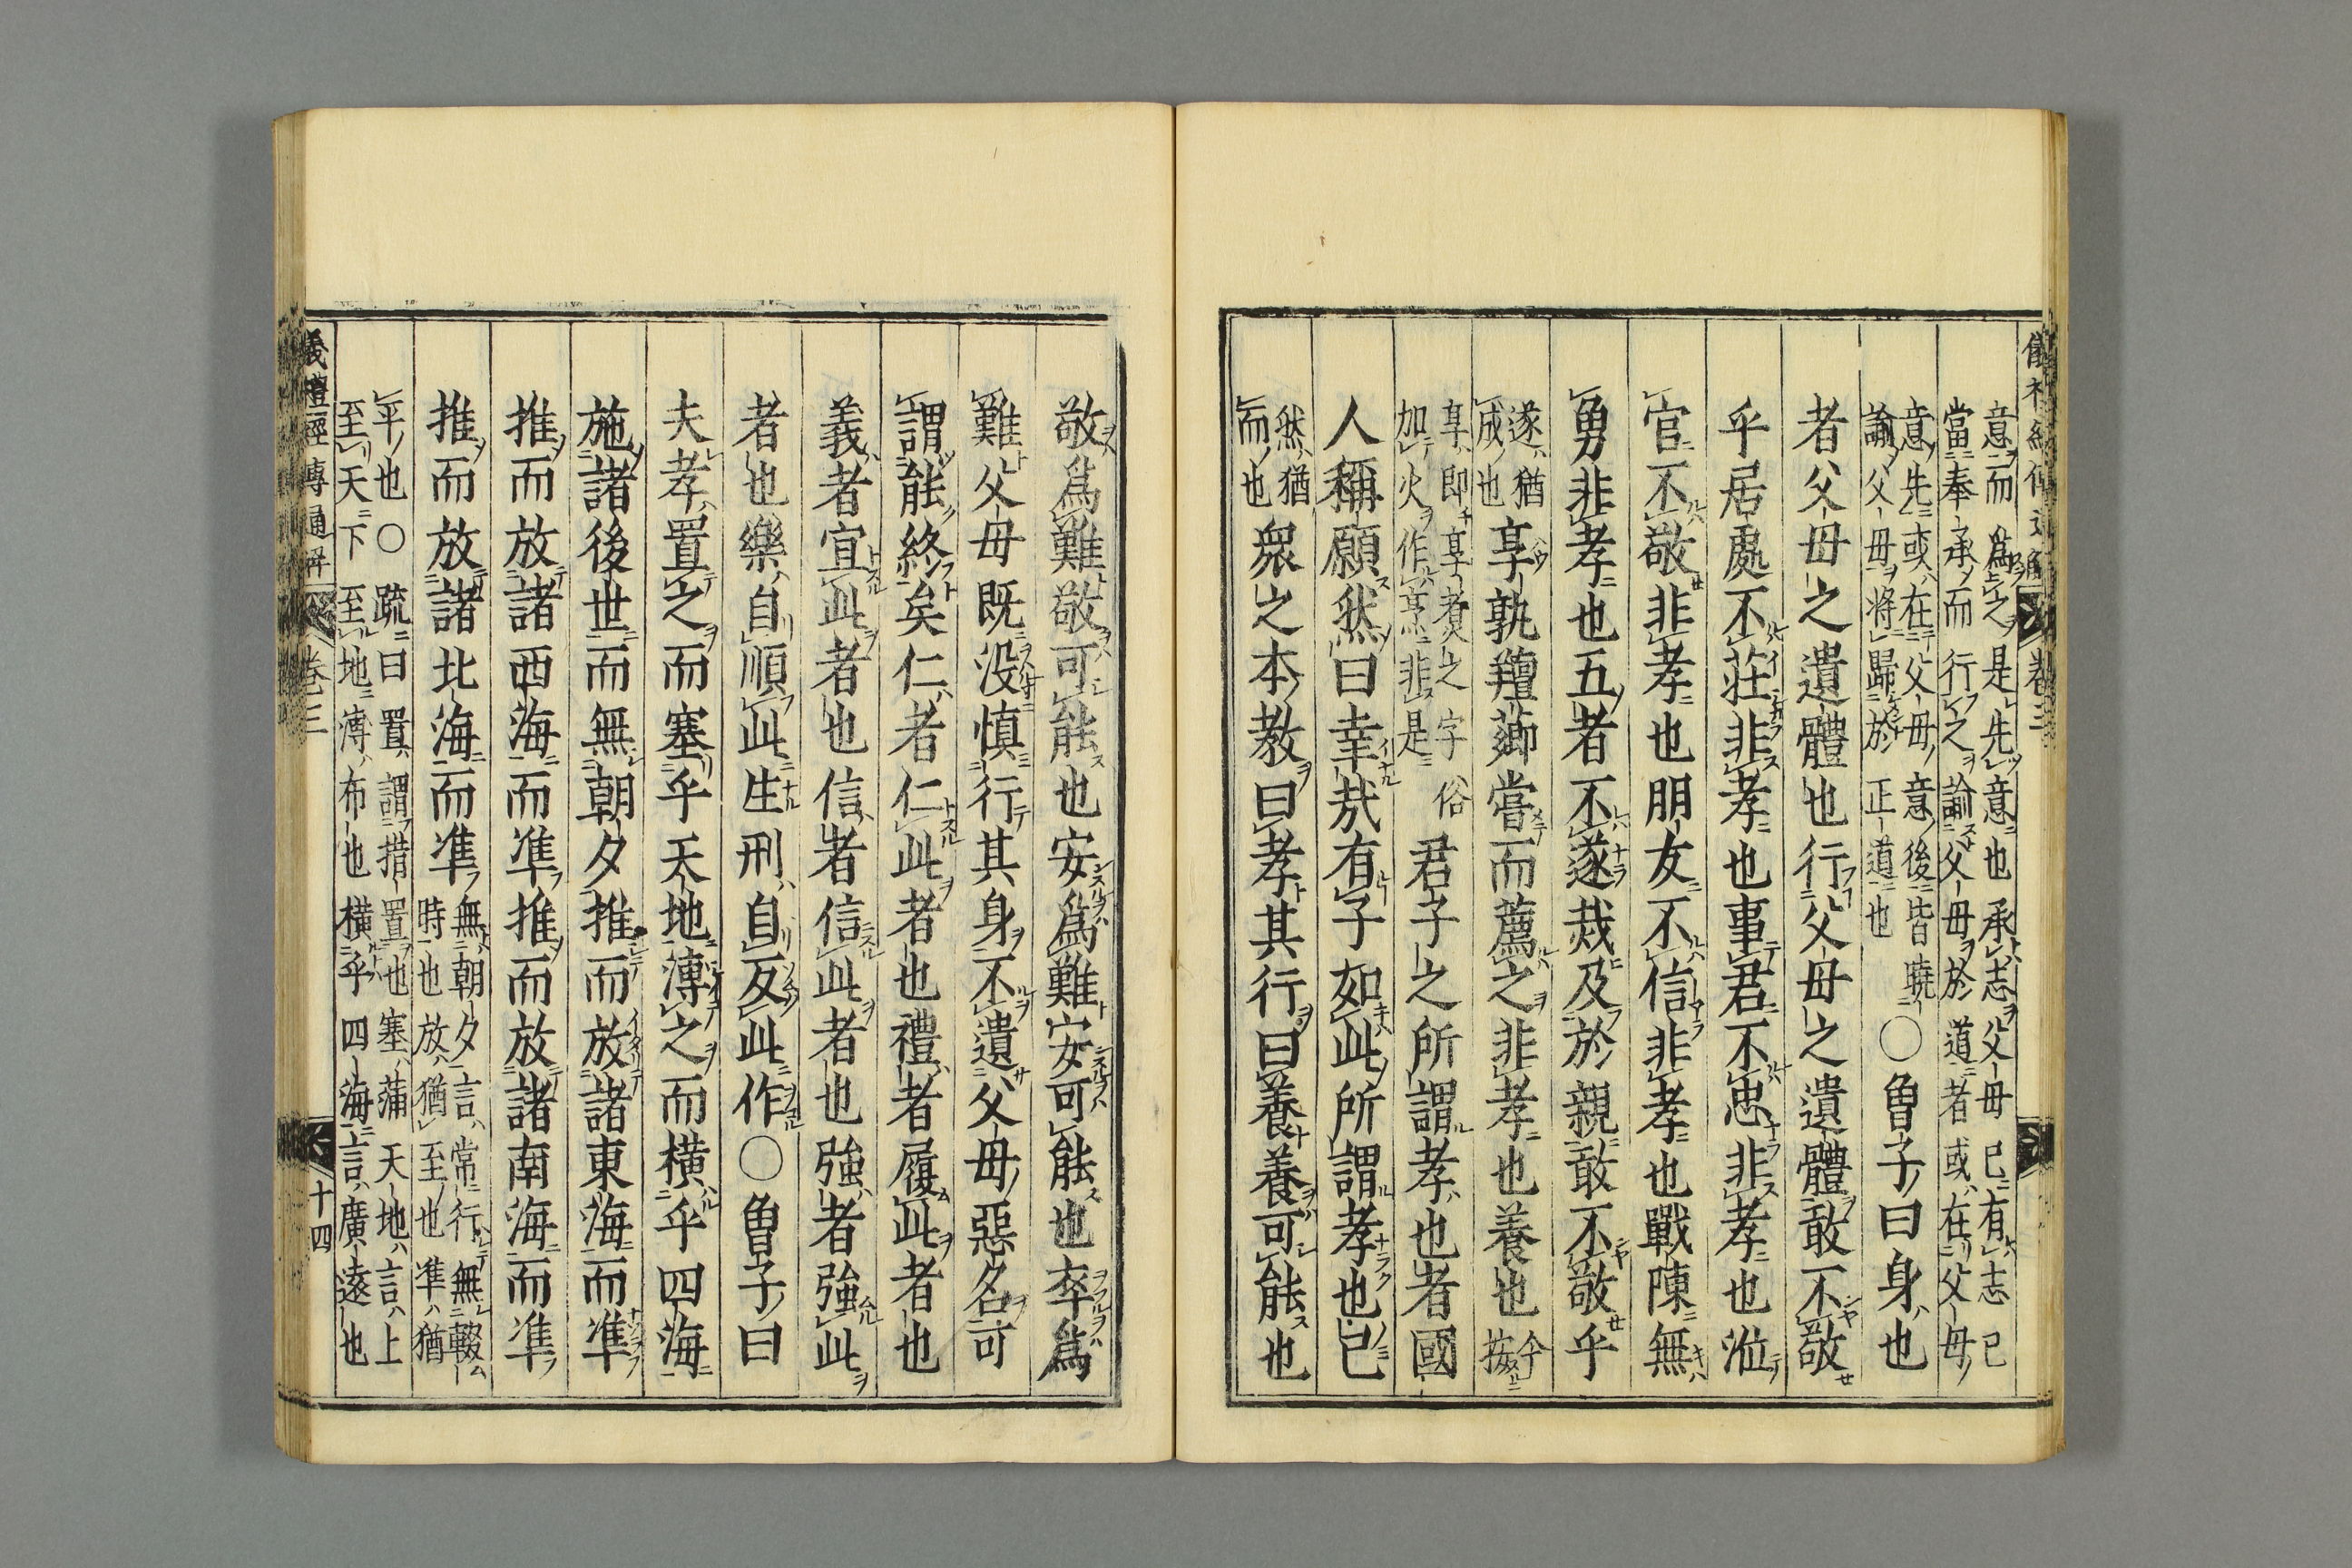 意而爲之是先意也承志父母已有志己
當奉承而行之諭父母於道者或在父母
意先或在父母意後皆曉
諭父母將歸於正道也
○曾子曰身也
者父母之遺體也行父母之遺體敢不敬
乎居處不莊非孝也事君不忠非孝也涖
官不敬非孝也朋友不信非孝也戰陳無
勇非孝也五者不遂烖及於親敢不敬乎
遂猶
成也
享孰羶薌嘗而薦之非孝也養也
今按
享即享煑之字俗
加火作烹非是
君子之所謂孝也者國
人稱願然曰幸㢤有子如此所謂孝也已
然猶
而也
衆之本教曰孝其行曰養養可能也
敬爲難敬可能也安爲難安可能也卒爲
難父母既没慎行其身不遺父母惡名可
謂能終矣仁者仁此者也禮者履此者也
義者宜此者也信者信此者也強者強此
者也樂自順此生刑自反此作○曾子曰
夫孝置之而塞乎天地溥之而橫乎四海
施諸後世而無朝夕推而放諸東海而準
推而放諸西海而準推而放諸南海而準
推而放諸北海而準
無朝夕言常行無輟
時也放猶至也準猶
平也○疏曰置謂措置也塞蒲天地言上
至天下至地溥布也橫乎四海言廣遠也
儀禮經傳通解
卷三
十四